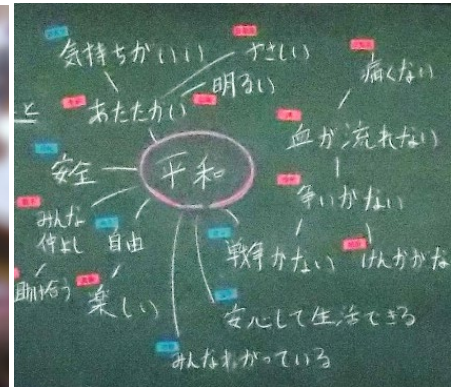 気持ちがいい
やさしい
痛くない
明るい
あたたかい
と
血が流れない
安全
平和
争いがない
みんな
仲よし
自由
戦争がない
けんかがな
助け合う
楽しい
安心して生活できる